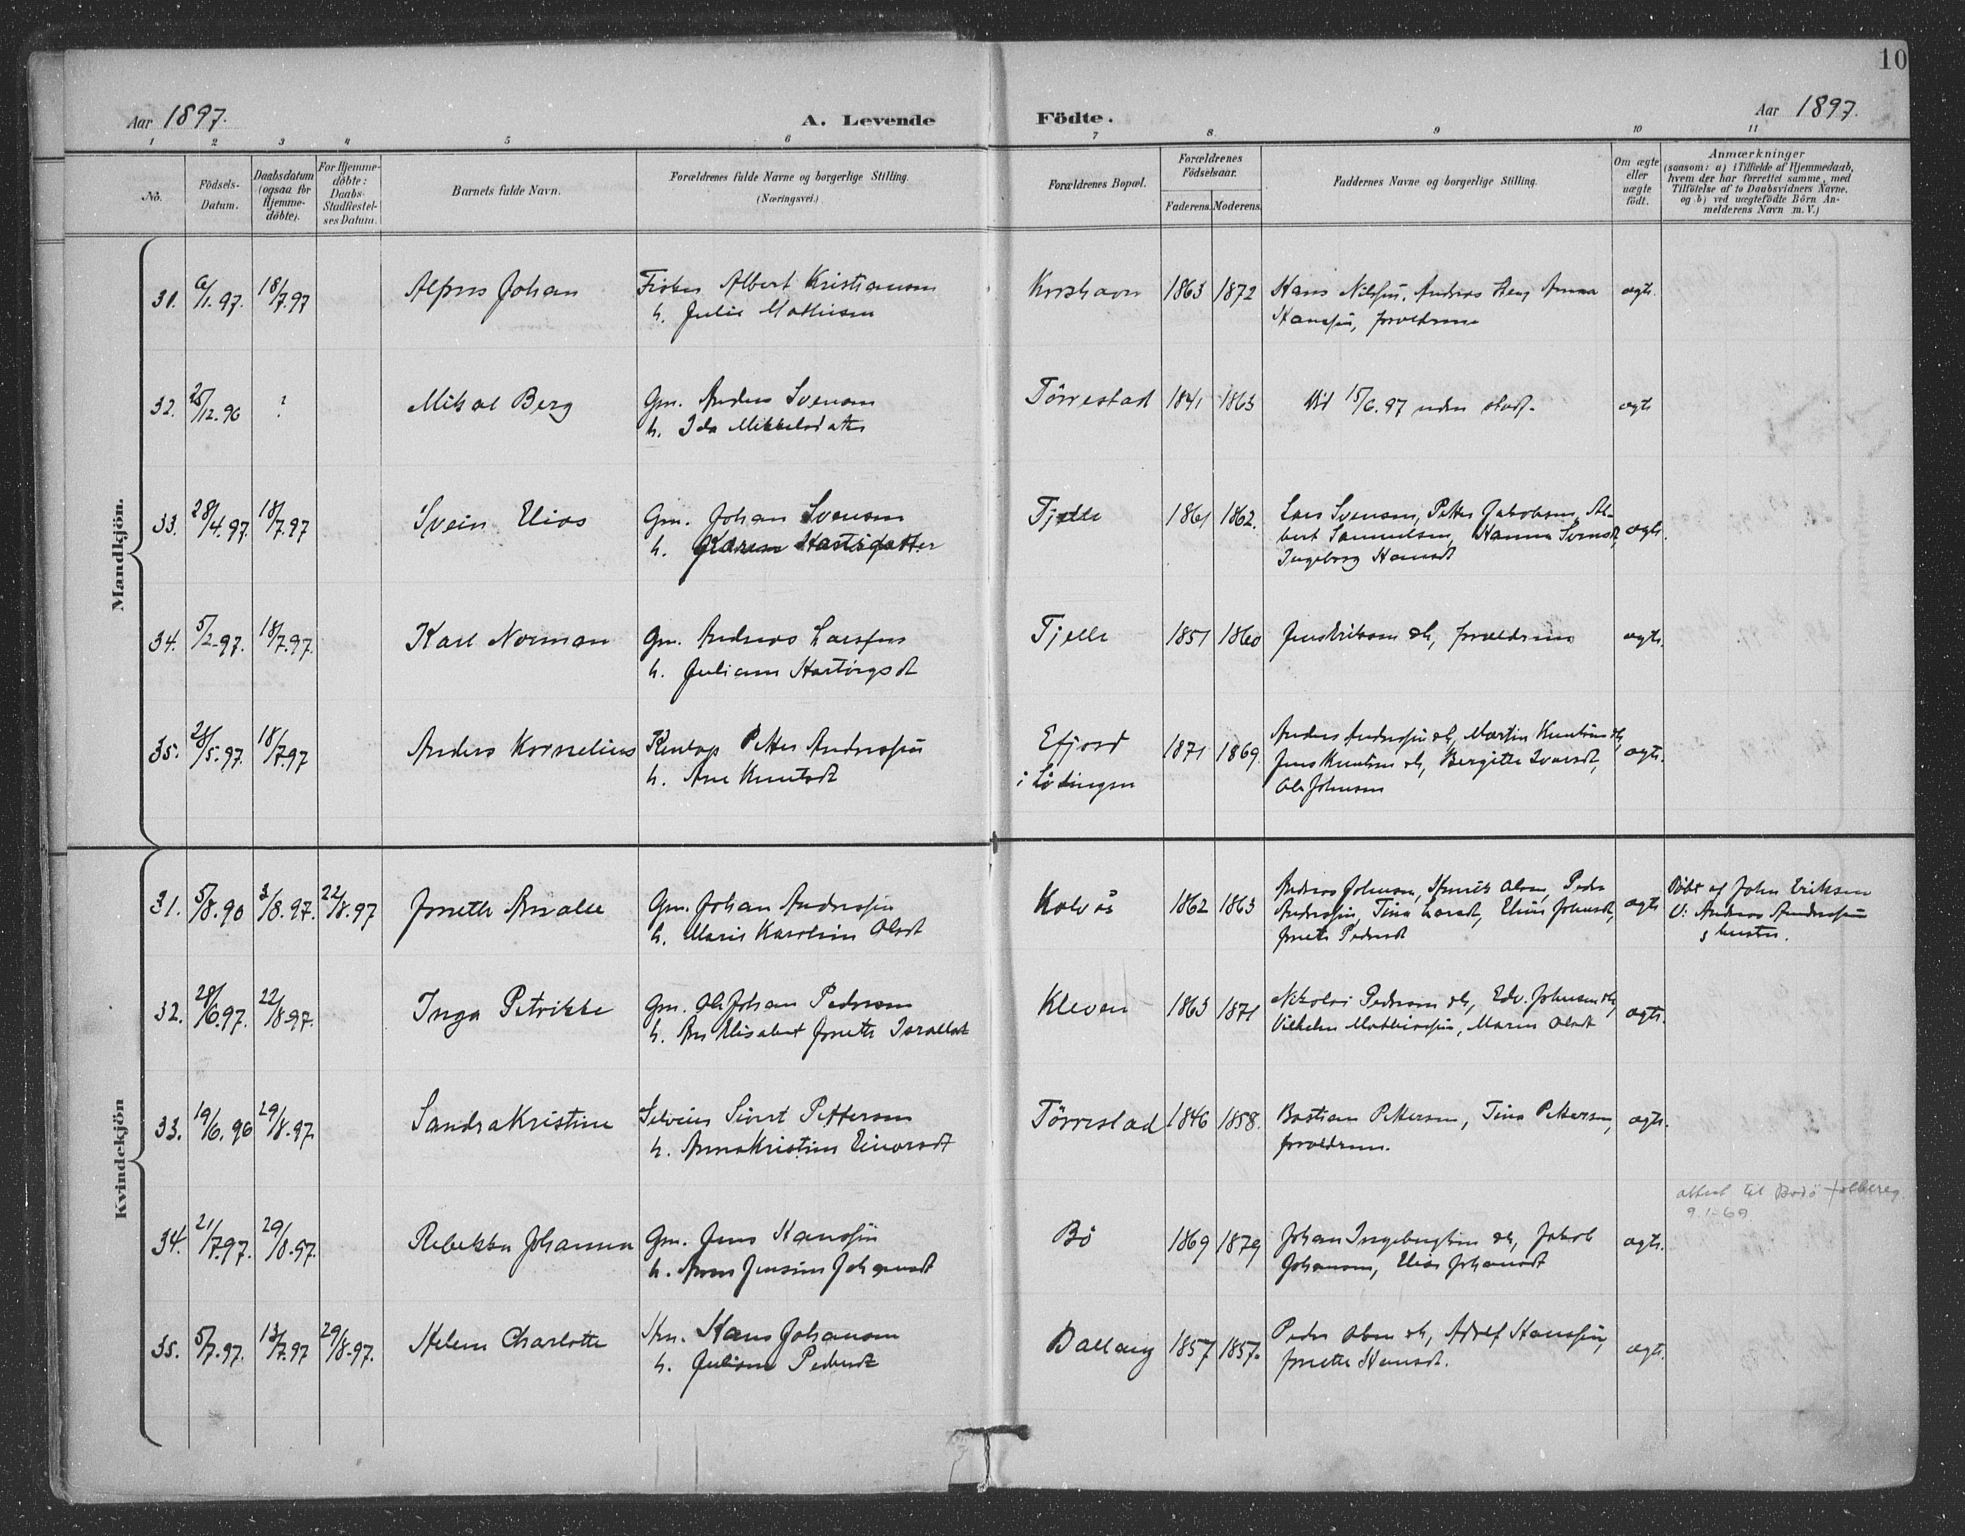 10
Aar 1897.
A. Levende
Födte.
Aar 1897.
1 2 3 4 5 6 7 8. 9 10 11
No.
Födsels-
Datum.
Daabsdatum
(ogsaa for
Hjemme-
döbte).
For Hjemme-
döbte:
Daabs-
Stadfæstel-
ses Datum.
Barnets fulde Navn.
Forældrenes fulde Navne og borgerlige Stilling.
(Næringsvei.)
Forældrenes Bopæl.
Forældrenes
Födselsaar.
Faderens. Moderens.
Faddernes Navne og borgerlige Stilling.
Om ægte
eller
uægte
födt.
Anmærkninger
(saasom: a) i Tilfælde af Hjemmedaab,
hvem der har forrettet samme, med
Tilföielse af to Daabsvidners Navne,
og b) ved uægtefödte Börn An-
melderens Navn m. V.)
Mandkjön.
31. 6/1.97. 18/7.97 Johan Fisker Albert Kristiansen 1863 1872 Hans Nilssen, Andreas Anna ægte.
h. Julie Mathisen Hanssen, forældrene
32. 25/12.96 ? Mikal Berg Gm. Anders Svensen Tørrestad 1841 1863 Vid 15/6.97 uden ægte
h. Ida Mikkelsdatter
33. 28/4.97. 18/7.97 Svein Elias Gm. Johan Svensen Fjelle 1861 1862. Lars Svensen, Petter Jakobsen, Al-
bert Samuelsen, Hanna Svensdt, ægte.
h. Karen Hartvigdatter
Ingeborg Hansdt
34. 5/2.97. 18/7.97. Karl Norman Gm. Andreas Larssen Fjelle 1851 1860 Jens Eriksen og h, forældrene ægte.
h. Juliane Hartvigsdt
35. 28/5.97. 18/7.97 Anders Kornelius Petter Andreassen Efjord 1871 1869. Anders Andreassen og h, Martin Knutsen og h, ægte.
h. Ane Knutsdt i Lødingen Jens Knutsen og h, Bergitte Ivarsdt,
Ole Johnsen
Kvindekjön
31. 5/8.90 3/8.97. 22/8.97 Jonette Gm. Johan Andreassen Kalvås 1862 1863 Andreas Johnsen, Henrik Olsen, Peder ægte Døbt af John Eriksen
h. Marie Karoline Olsdt Andreassen, Tina Larsdt, Eline Johnsdt, V: Andreas Andreassen
Jonette Pedersdt g hustru.
32. 28/6.97. 22/8.97. Inga Petrikke Gm. Ole Johan Pedersen Kleven 1863 1871 Nikolai Pedersen og h, Edv. Johnsen og h, ægte.
h. Elisabet Jonette Israelsdt Vilhelm Mathiassen, Maren Olsdt
33. 19/6.96 29/8.97. Sandra Kristine Sivert Pettersen Tørrestad 1846 1858. Bastian Pettersen, Tina Pettersen, ægte.
h. Anna Kristine Einarsdt forældrene.
attest til Bodø
9.1-69
34. 21/7.97. 29/8.97. Rebekka Johanna Gm. Jens Hanssen Bø 1869 1879 Johan Ingebrigtsen og h, Jakob ægte.
h. Anna Jensine Johansdt Johansen, Elise Johansdt
35. 5/7.97. 13/7.97 29/8.97. Helene Charlotte Hans Johansen Ballang 1857 1857. Peder Olsen og h, Adolf Hanssen, ægte.
h. Juliane Pedersdt Jonette Hansdt.